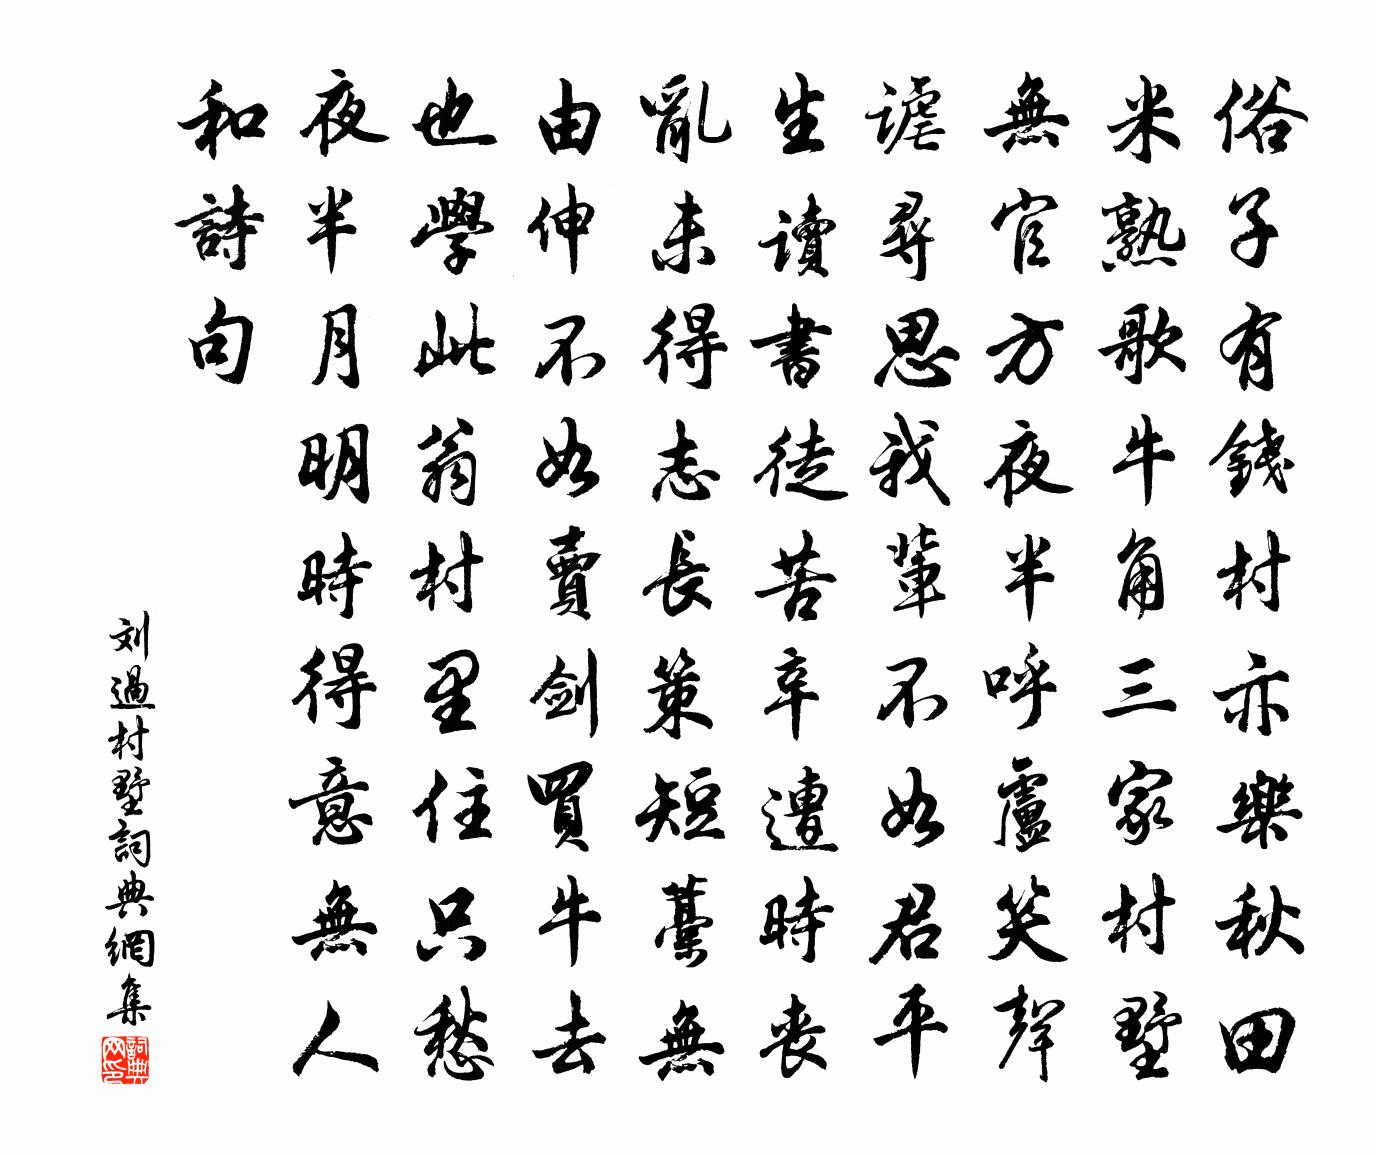 俗子有錢村亦樂秋田
米熟歌牛角三家村墅
無官方夜半呼盧笑聲
謔尋思我輩不如君平
生讀書徒苦辛遭時喪
亂未得志長策短藁無
由伸不如賣劍買牛去
也學此翁村里住只愁
夜半月明時得意無人
和詩句
刘過村墅詞典網集
詞典网印